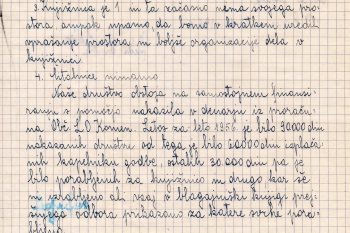 3. Knjižnica je 1 in ta začasno nema svojega pro-
stora ampak upamo, da bomo v kratkem uredili
vprašanje prostora in boljše organizacije dela v
knjižnici
4. Čitalnice nimamo
Naše društvo obstoja na samostojnem financi-
ranju s pomočjo nakazila v denarju iz proraču
na Obč. L.O Komen. Letos za leto 1956 je bilo 90000 din
nakazanih društvu od tega je bilo 60000 din izplač-
nih kapelniku godbe, ostalih 30.000 din pa je
bilo porabljenih za knjižnico in drugo kar še
ni izrabljeno ali vsaj v blagajniški knjigi prej-
šnjega odbora prikazano za katere svrhe pora-
bljeno